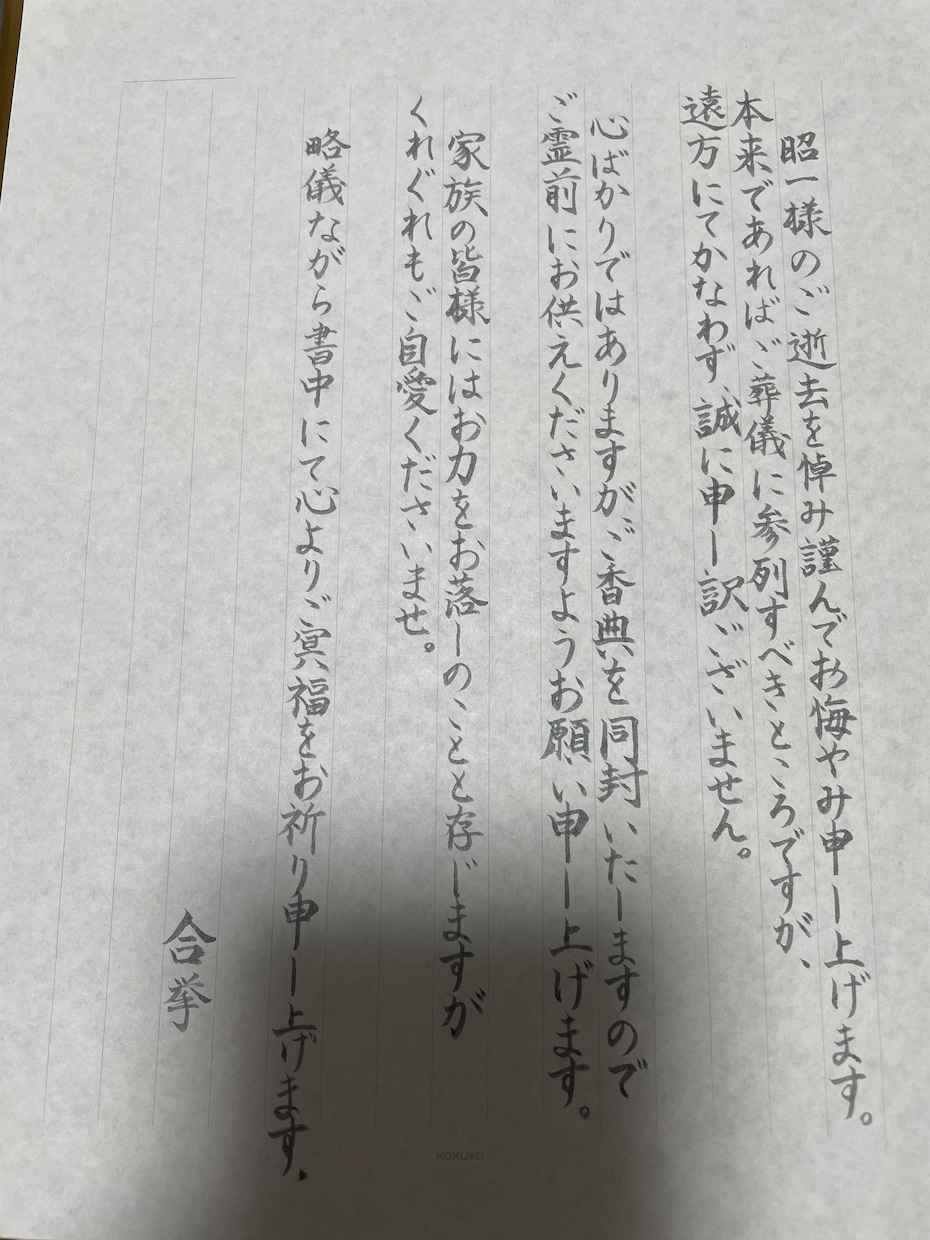 昭一様のご逝去を悼み謹んでお悔やみ申し上げます。
本来であればご葬儀に参列すべきところですが、
遠方にてかなわず、誠に申し訳ございません。
心ばかりではありますが、ご香典を同封いたしますので
ご霊前にお供えくださいますようお願い申し上げます。
家族の皆様にはお力をお落しのことと存じますが
くれぐれもご自愛くださいませ。
略儀ながら書中にて心よりご冥福をお祈り申し上げます、
合挙
KOKUYO